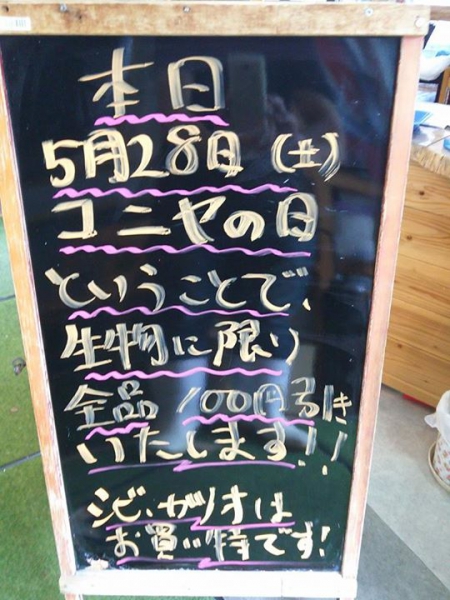 本日
5月28日(土)
コニヤの日
ということで、
生物に限り
全品100円引き
いたします!!
シビ、ガツオは
お買い特です!